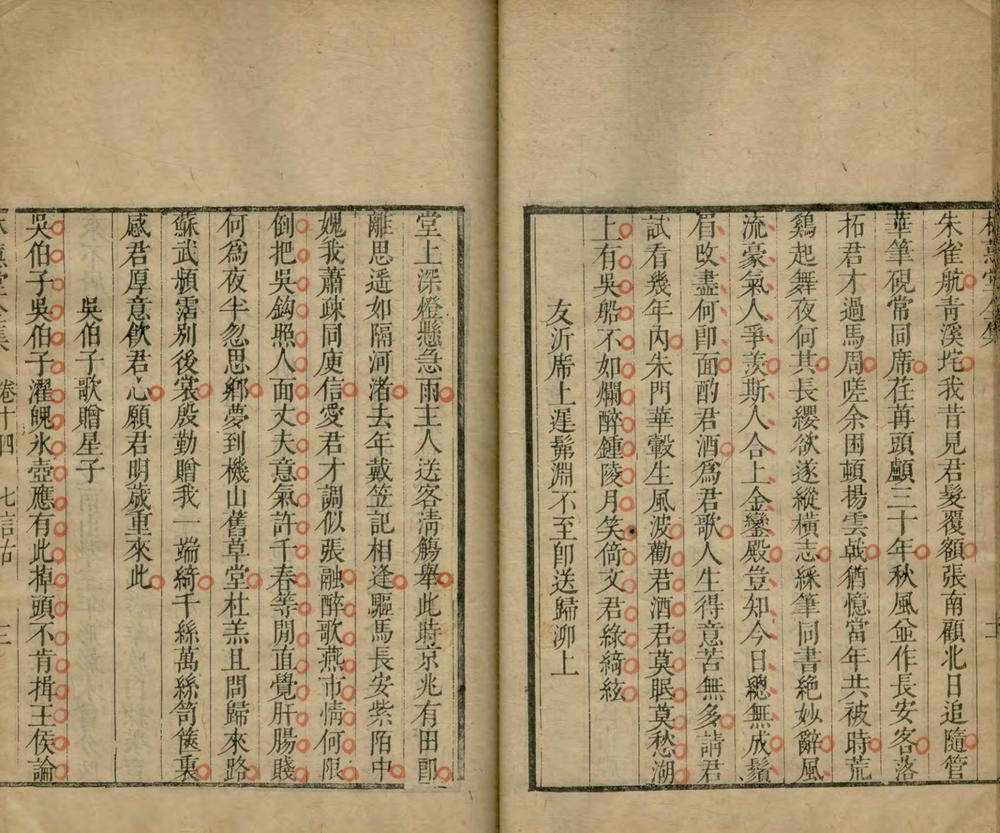 林蕙堂全集
朱雀航青溪垞我昔見君髮覆額張南顧北日追隨管
華筆硯常同席荏苒頭顱三十年秋風並作長安客落
拓君才過馬周嗟余困頓揚雲戟猶憶當年共被時荒
鷄起舞夜何其長纓欲遂縱橫志綵筆同書絕妙辭風
流豪氣人爭羨斯人合上金鑾殿豈知今日總無成鬚
眉改盡何卽面酌君酒爲君歌人生得意苦無多請君
試看幾年內朱門華轂生風波勸君酒君莫眠莫愁湖
上有吳船不如爛醉鍾陵月笑倚文君綠綺絃
友沂席上遲髴淵不至卽送歸泖上
堂上深燈懸急雨主人送客淸觴舉此時京兆有田郎
離思遥如隔河渚去年戴笠記相逢驅馬長安紫陌中
媿我蕭疎同庾信愛君才調似張融醉歌燕市情何限
倒把吳鈎照人面丈夫意氣許千春等閒直覺肝腸賤
何爲夜半忽思鄉夢到機山舊草堂杜羔且問歸來路
蘇武頻霑別後裳殷勤贈我一端綺千絲萬絲笥篋裏
感君厚意飲君心願君明歲重來此
吳伯子歌贈星子
吳伯子吳伯子濯魄氷壺應有此掉頭不肯揖王侯論
林蕙堂全集 卷十四 七言古 三